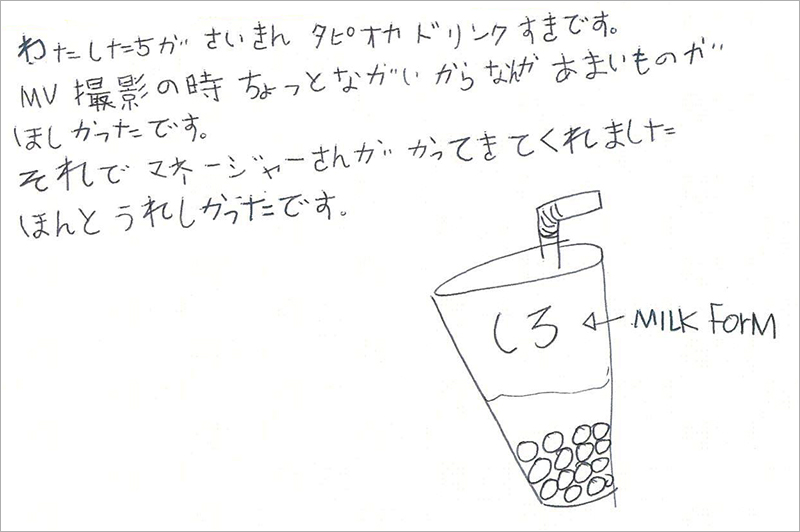 わたしたちが さいきん タピオカドリンクすきです。
MV 撮影の時 ちょっとながい からなんが あまいものが
ほしかったです。
それで マネージャーさんが かってきてくれました
ほんと うれしかったです。
しろ
MILK ForM